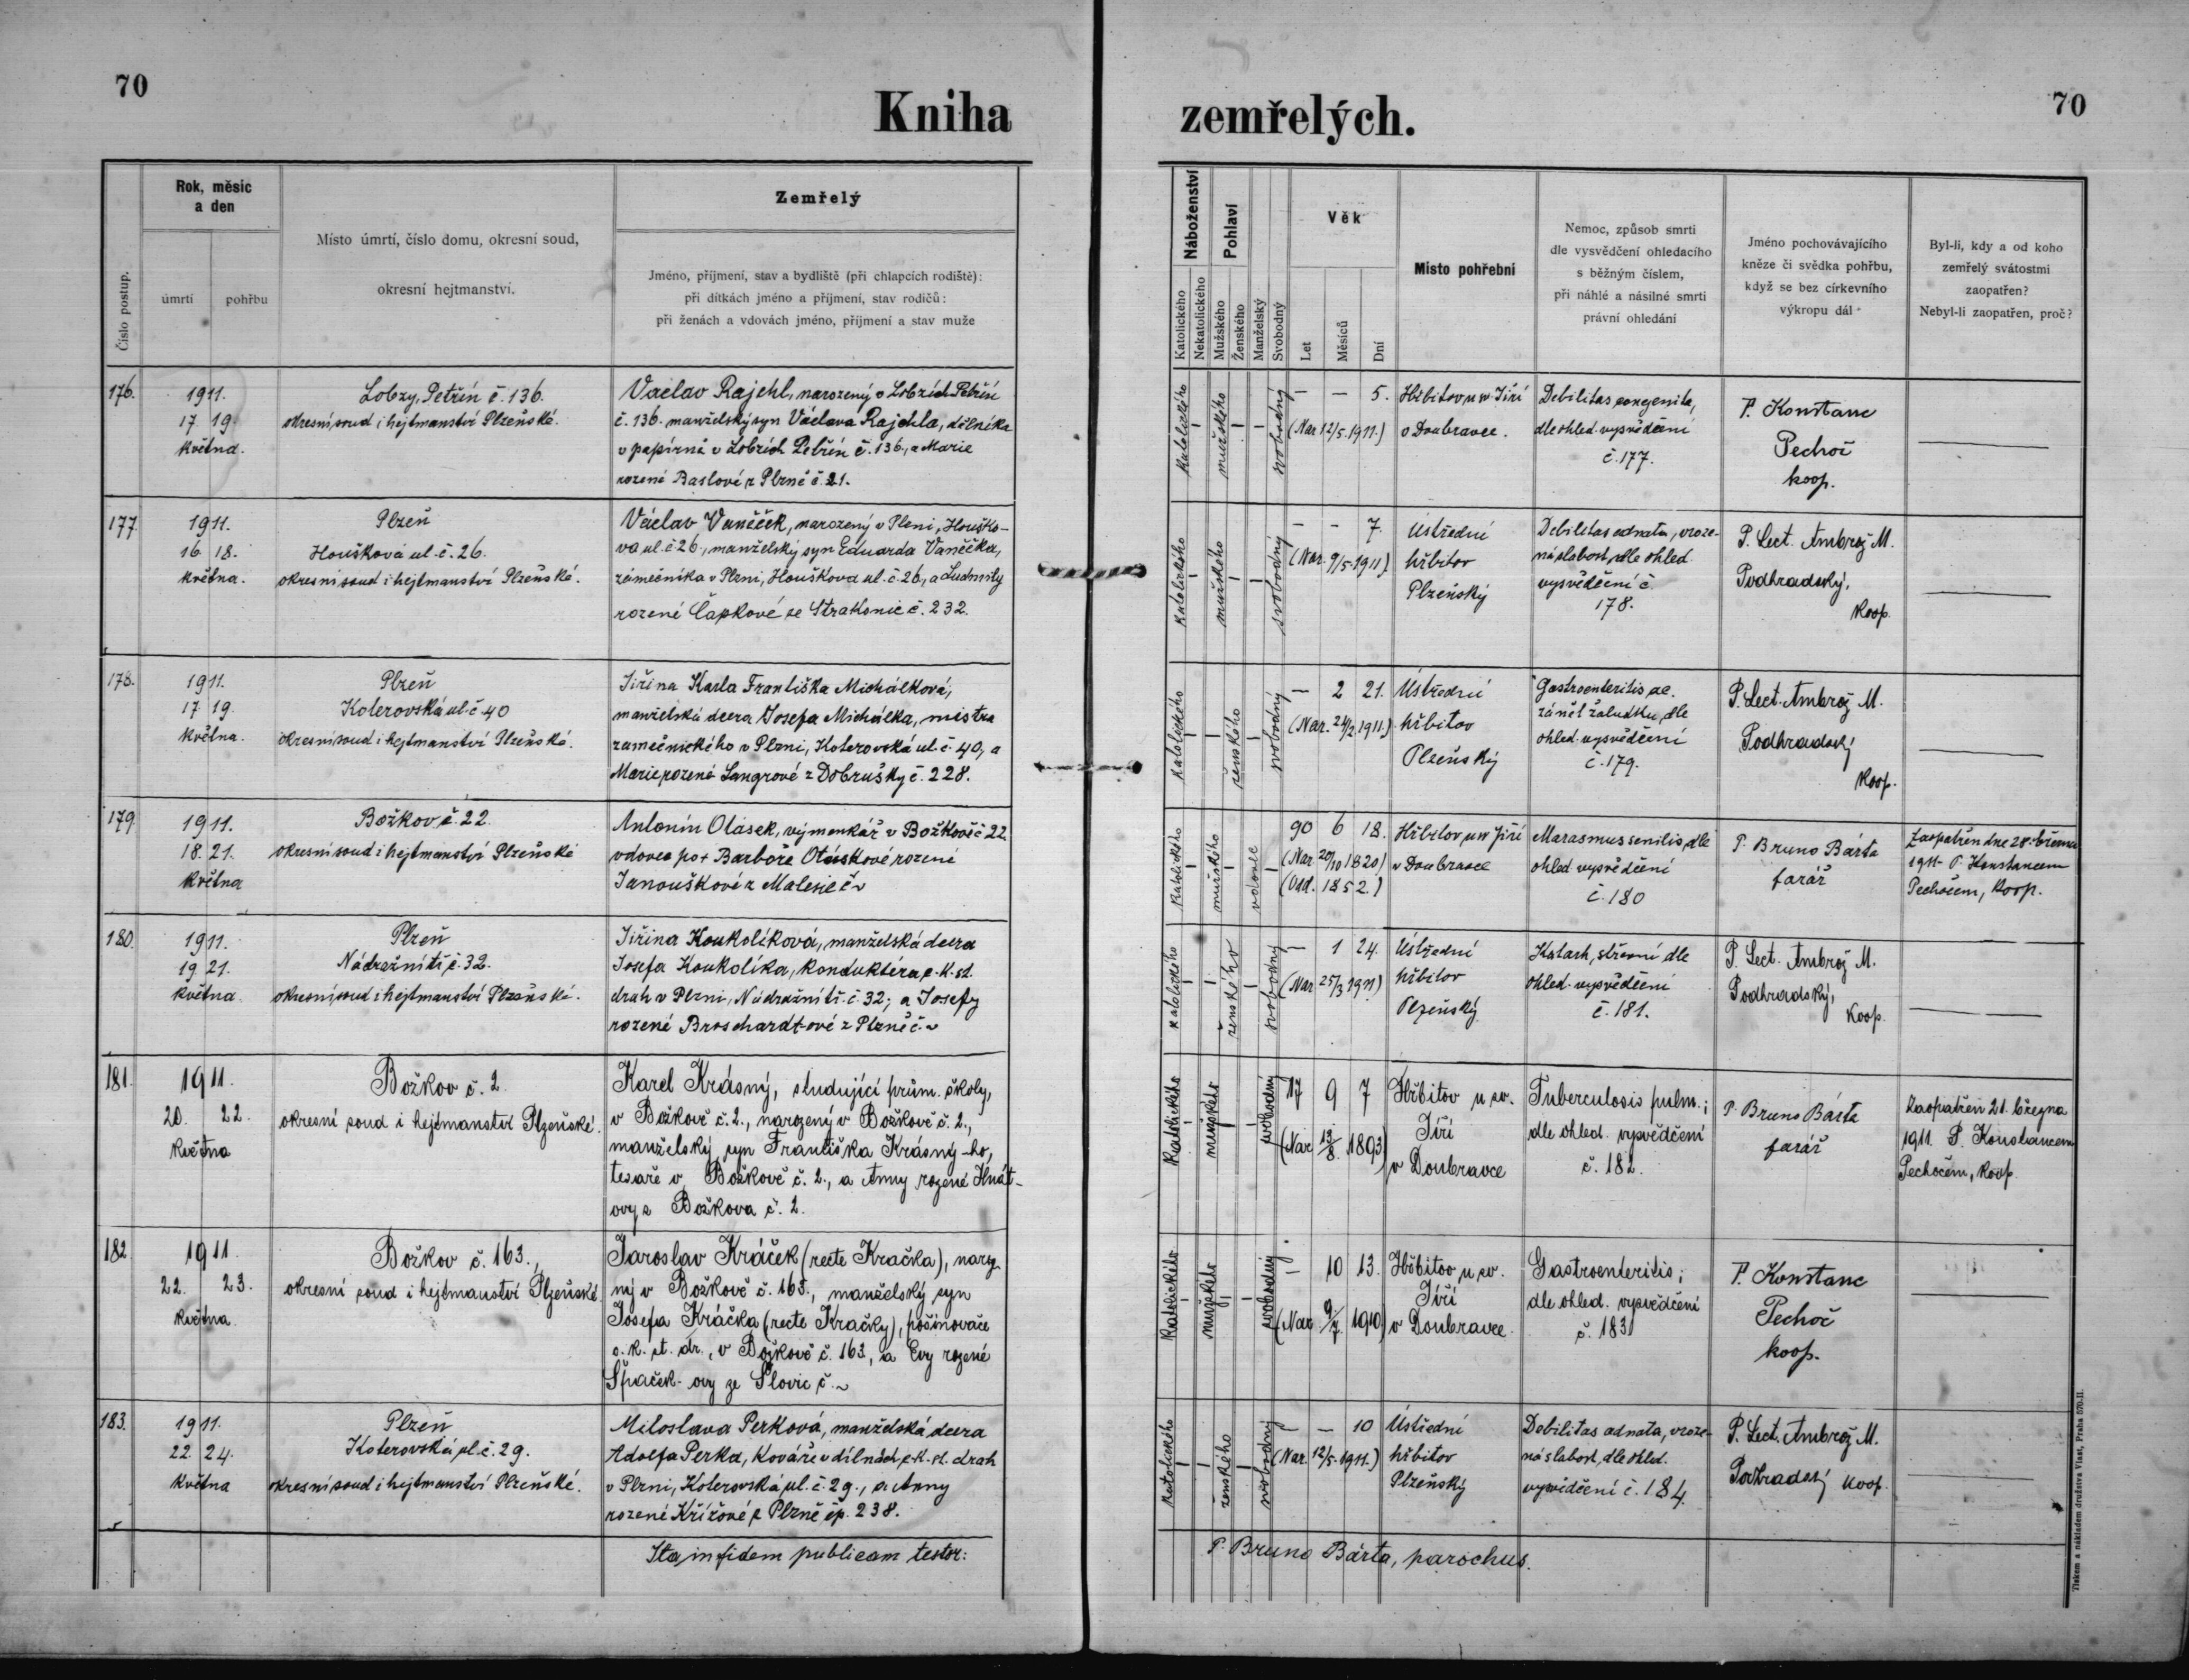 70
Kniha
zemřelých.
70
Číslo postup.
Rok, měsíc
a den
úmrtí
pohřbu
Místo úmrtí, číslo domu, okresní soud,
okresní hejtmanství.
Zemřelý
Jméno, příjmení, stav a bydliště (při chlapcích rodiště):
při dítkách jméno a příjmení, stav rodičů:
při ženách a vdovách jméno, příjmení a stav muže
Náboženství
Katolického
Nekatolického
Pohlaví
Mužského
Ženského
Manželský
Svobodný
Věk
Let
Měsíců
Dní
Místo pohřební
Nemoc, způsob smrti
dle vysvědčení ohledacího
s běžným číslem,
při náhlé a násilné smrti
právní ohledání
Jméno pochovávajícího
kněze či svědka pohřbu,
když se bez církevního
výkropu dál
Byl-li, kdy a od koho
zemřelý svátostmi
zaopatřen?
Nebyl-li zaopatřen, proč?
176.
1911.
17 19
května.
Lobzy, Petřín č. 136.
okresní soud i hejtmanství Plzeňské.
Václav Rajchl, narozený v Lobzích Petřín
č. 136. manželský syn Václava Rajchla, dělníka
v papírně v Lobzích Petřín č. 136., a Marie
rozené Baslové z Plzně č. 21.
katolického
mužského
svobodný
— — 5.
(Nar. 12/5. 1911.)
Hřbitov u sv Jiří
v Doubravce.
Debilitas congenita,
dle ohled. vysvědčení
č. 177.
P. Konstanc
Pechoč
koop.
177.
1911.
16. 18.
května.
Plzeň
Houškova ul. č. 26.
okresní soud i hejtmanství Plzeňské.
Václav Vaněček, narozený v Plzni, Houško-
va ul. č 26., manželský syn Eduarda Vaněčka,
zámečníka v Plzni, Houškova ul. č. 26, a Ludmily
rozené Čapkové ze Strakonic č. 232.
katolického
mužského
svobodný
- - 7.
(Nar. 9/5. 1911)
Ústřední
hřbitov
Plzeňský
Debilitas adnata, vroze-
ná slabost, dle ohled
vysvědčení č.
178.
P. Lect. Ambrož M.
Podhradský,
koop.
178.
1911.
17 19.
května.
Plzeň
Koterovská ul. č 40
okresní soud i hejtmanství Plzeňské.
Jiřina Karla Františka Michálková,
manželská dcera Josefa Michálka, mistra
zámečnického v Plzni, Koterovská ul. č. 40, a
Marie, rozené Langrové z Dobrušky č. 228.
katolického
ženského
svobodný
— 2 21.
(Nar. 24/2. 1911.)
Ústřední
hřbitov
Plzeňský
Gastroenteritis ac.
zánět žaludku, dle
ohled. vysvědčení
č. 179.
P. Lect. Ambrož M.
Podhradský
koop.
179.
1911.
18. 21.
května
Božkov, č. 22
okresní soud i hejtmanství Plzeňské
Antonín Otásek, výmenkář v Božkově č 22.
vdovec po + Barboře Otáskové rozené
Janouškové z Malesic č ~
katolického
mužského
vdovec
90 6 18.
(Nar. 20/10 1820)
(Odd. 1852.)
Hřbitov u sv Jiří
v Doubravce
Marasmus senilis, dle
ohled. vysvědčení
č. 180
P. Bruno Bárta
farář
Zaopatřen dne 28. března
1911. P. Konstancem
Pechočem, koop.
180.
1911.
19 21.
května
Plzeň
Nádražní tř. č. 32.
okresní soud i hejtmanství Plzeňské.
Jiřina Koukolíková, manželská dcera
Josefa Koukolíka, konduktéra c. k. st.
drah v Plzni, Nádražní tř. č. 32; a Josefy
rozené Broschardt-ové z Plzně č. ~
katolického
ženského
svobodný
— 1 24.
(Nar. 25/3 1911)
Ústřední
hřbitov
Plzeňský
Katarh, střevní dle
ohled. vysvědčení
č. 181.
P. Lect. Ambrož M.
Podhradský,
koop.
181.
1911.
20. 22.
května
Božkov č. 2.
okresní soud i hejtmanství Plzeňské.
Karel Krásný, studující prům. školy,
v Božkově č. 2., narozený v Božkově č. 2.,
manželský syn Františka Krásný-ho,
tesaře v Božkově č. 2., a Anny rozené Hnát-
ovy z Božkova č. 2.
Katolického
mužského
svobodný
17 9 7
(Nar 13/8. 1893)
Hřbitov u sv.
Jiří
v Doubravce
Tuberculosis pulm.;
dle ohled. vysvědčení
č. 182.
P. Bruno Bárta
farář
Zaopatřen 21. března
1911. P. Konstancem
Pechočem, koop.
182.
1911.
22. 23.
května.
Božkov č. 163.,
okresní soud i hejtmanství Plzeňské.
Jaroslav Kráček (recte Kračka), naroz-
ný v Božkově č. 163., manželský syn
Josefa Kráčka (recte Kračky), pošinovače
c. k. st. dr., v Božkově č. 163, a Evy rozené
Špaček-ovy ze Slovic č. ~
Katolického
mužského
svobodný
— 10 13.
(Nar 9/7. 1910)
Hřbitov u sv.
Jiří
v Doubravce.
Gastroenteritis;
dle ohled. vysvědčení
č. 183
P. Konstanc
Pechoč
koop.
183.
1911.
22. 24.
května
Plzeň
Koterovská ul. č. 29.
okresní soud i hejtmanství Plzeňské.
Miloslava Perková, manželská dcera
Adolfa Perka, kováře v dílnách c. k. st. drah
v Plzni, Koterovská ul. č. 29., a Anny
rozené Křížové z Plzně čp. 238.
Katolického
ženského
svobodný
— — 10
(Nar. 12/5. 1911.)
Ústřední
hřbitov
Plzeňský
Debilitas adnata, vroze-
ná slabost, dle ohled.
vysvědčení č. 184.
P. Lect. Ambrož M.
Podhradský koop.
Ita in fidem publicam testor:
P. Bruno Bárta, parochus.
Tiskem a nákladem družstva Vlast, Praha 570-II.